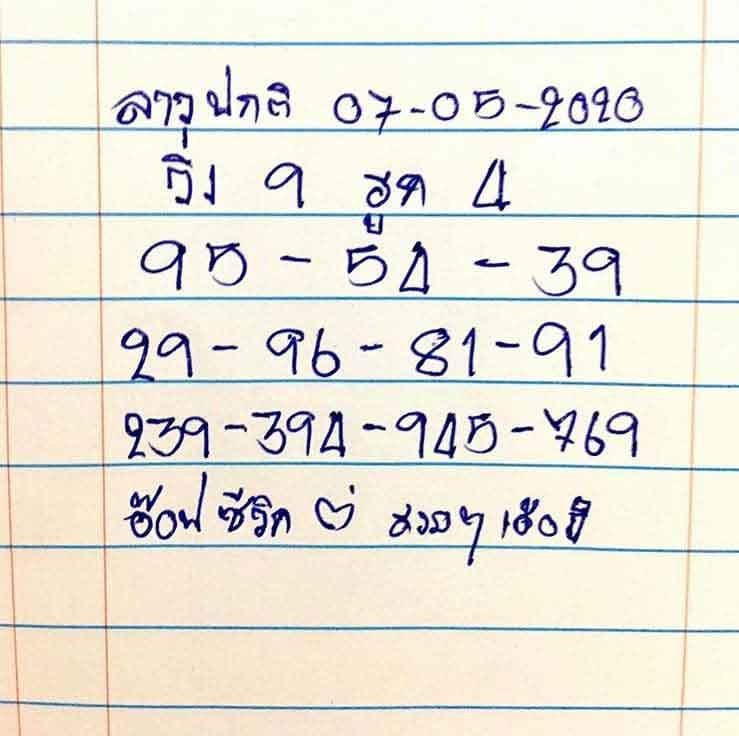 ลาวปกติ 07-05-2020
วิ่ง 9 รูด 4
95 - 54 - 39
29 - 96 - 81 - 91
239 - 394 - 945 - 769
อ๊อฟ ซีวิค